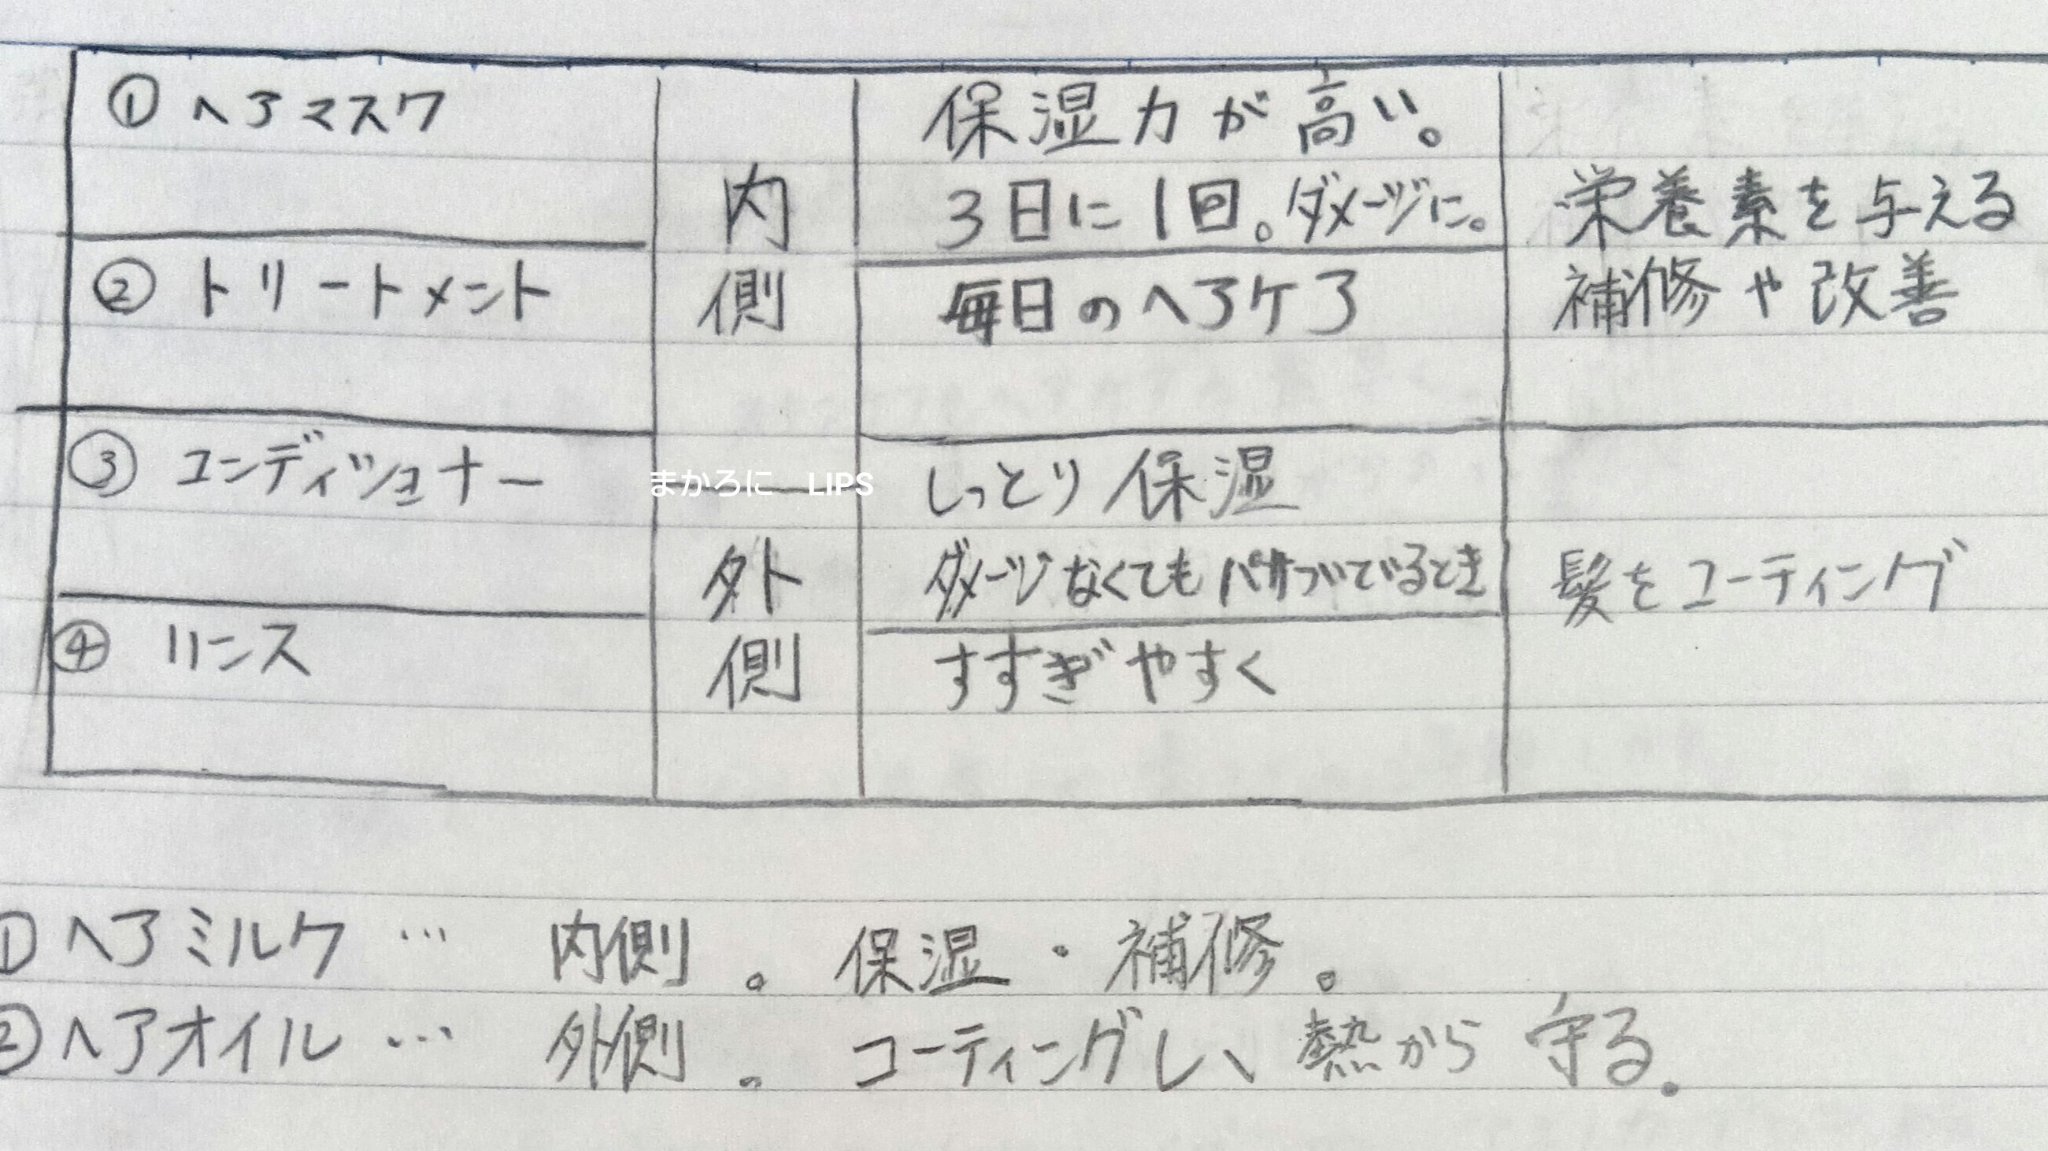 ① ヘアマスク
保湿力が高い。
3日に1回。ダメージに。
② トリートメント
内側
毎日のヘアケア
栄養素を与える
補修や改善
③ コンディショナー
しっとり保湿
ダメージなくてもパサついてるとき
④ リンス
外側
すすぎやすく
髪をコーティング
まかろに LIPS
① ヘアミルク … 内側。保湿・補修。
② ヘアオイル … 外側。コーティングし、熱から守る。